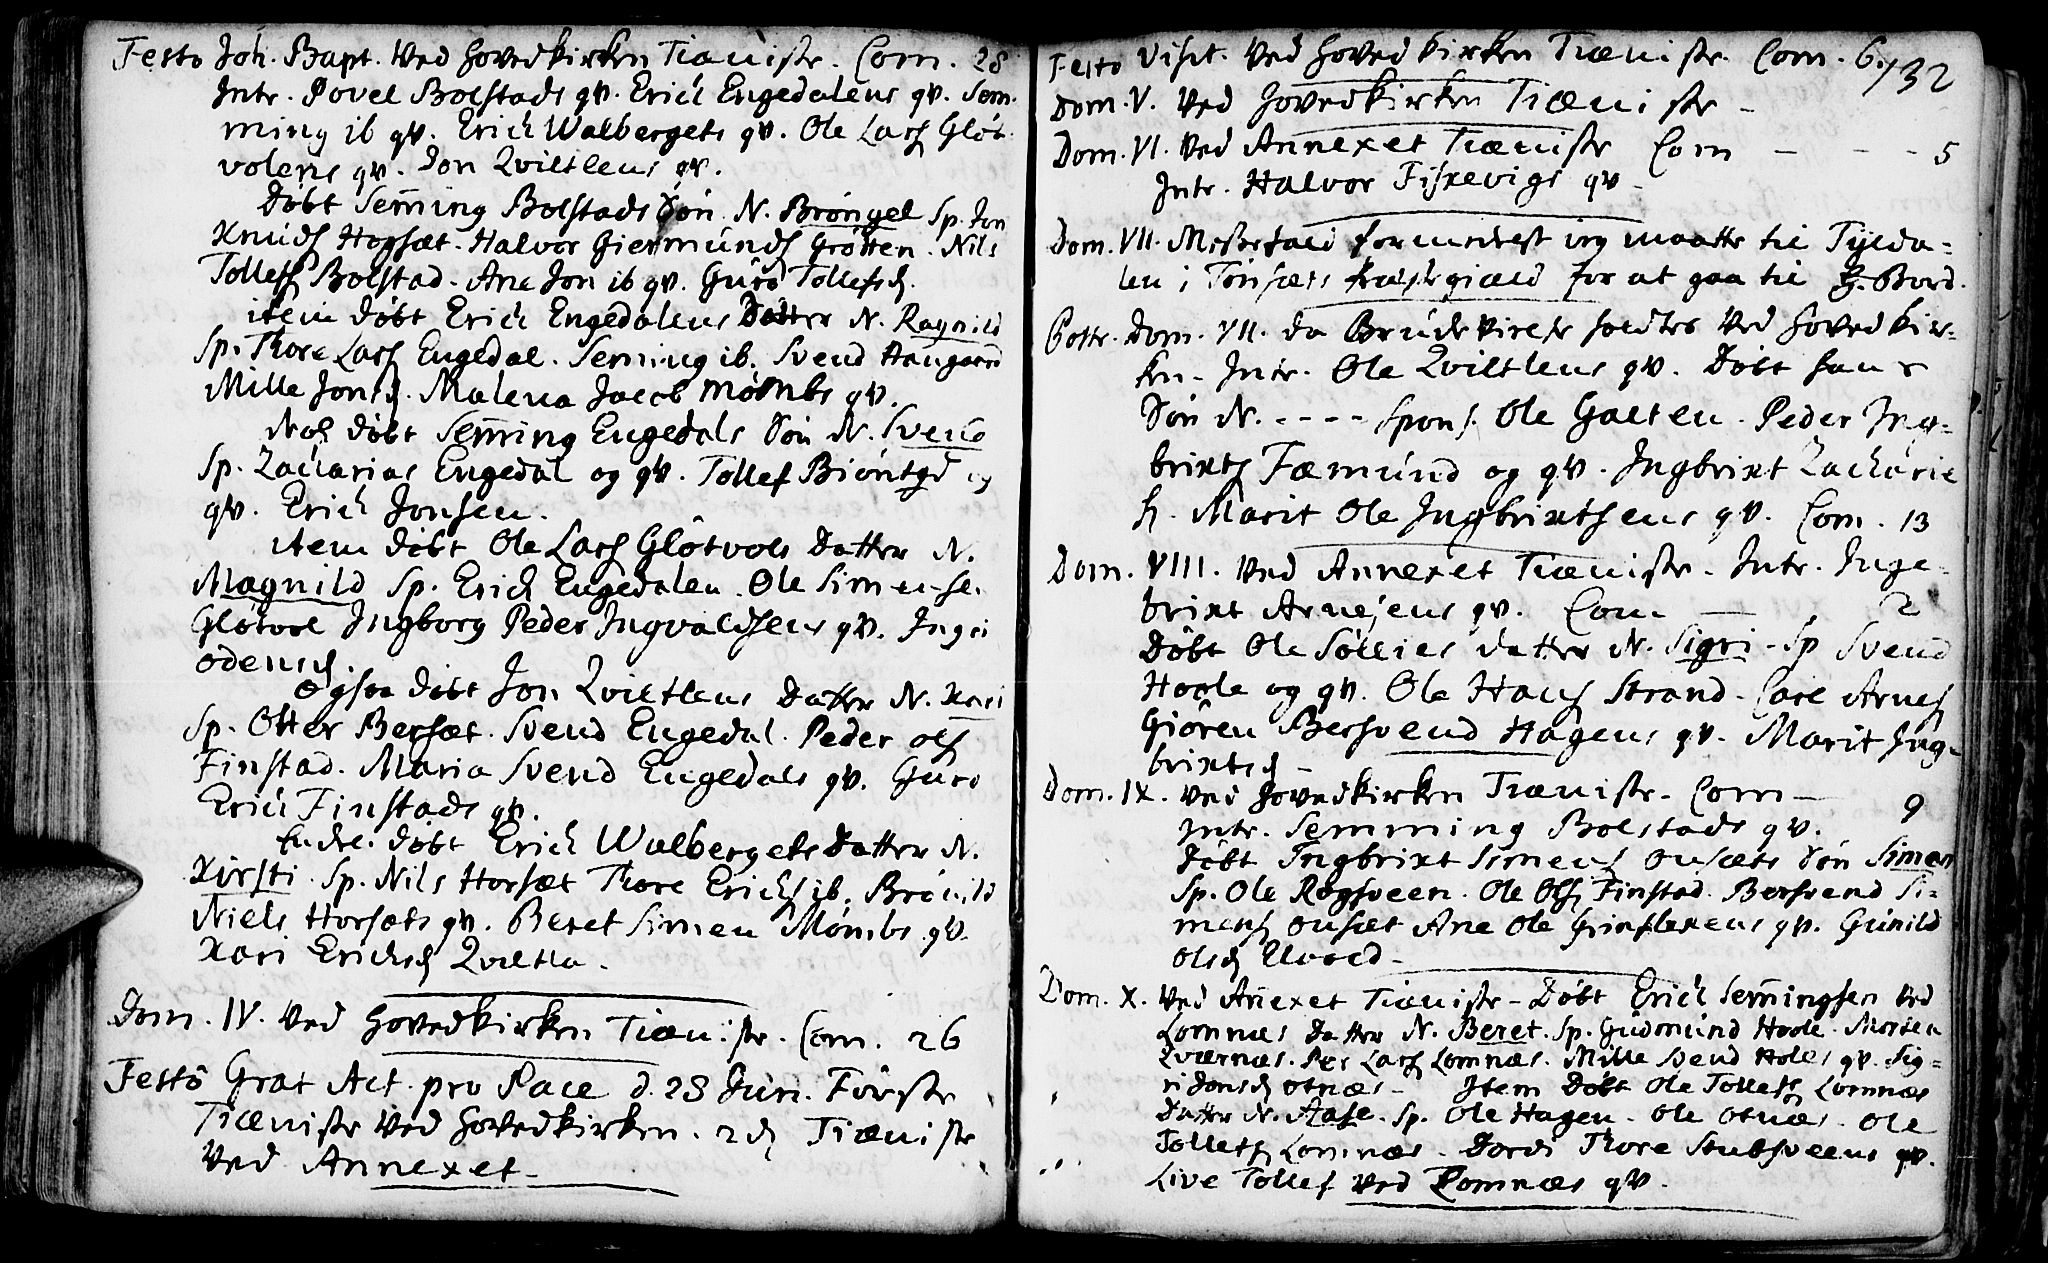 Festo Joh. Bapt. Ved Hovedkirken Tiæniste. Com. 28
Intr. Povel Bolstads qv. Erich Engedalens qv. Sem-
ming ib qv. Erich Walbergets qv. Ole Lars Gløt-
volens qv. Jon Qviltlens qv.
Døbt Semming Bolstads Søn N. Brøngel Sp. Jon
Knuds Horsæt. Halvor Giermunds Grøtten. Nils
Tollefs Bolstad. Ane Jon ib qv. Guro Tollefsd.
item døbt Erich Engedalens Datter N. Ragnild
Sp. Thore Lars Engedal. Seming ib. Svend Haugaard
Mille Jonsd. Malena Jacob Mømbs qv.
Nok døbt Semming Engedals Søn N. Svend
Sp. Zacharias Engedal og qv. Tollef Biøntgd og
qv. Erich Jonsen.
item døbt Ole Lars Gløtvols Datter N.
Magnild Sp. Erich Engedalen. Ole Simense.
Gløtvol Ingborg Peder Ingvaldsens qv. Ingri
Odensd.
Ogsaa døbt Jon Qviltlens Datter N. Kari
Sp. Otter Bersæt. Svend Engedal. Peder Ols
Finstad. Maria Svend Engedals qv. Guro
Erich Finstads qv.
Endel. døbt Erich Walbergets Datter N.
Kirsti. Sp. Nils Horsæt Thore Erichs ib. Brønild
Niels Horsæts qv. Beret Simen Mømbs qv.
Kari Erichsd Qviltla.
Dom. IV. Ved Hovedkirken Tiæniste. Com. 26
Festo Grat Act. pro Pace d. 28 Jun. Første
Tiæniste Ved Hovedkirken. 2d Tiæniste
Ved Annexet.
Festo Visit. Ved Hovedkirken Tiæniste. Com. 6.
132
Dom. V. Ved Hovedkirken Tiæniste -
Dom. VI. Ved Annexet Tiæniste Com - - - 5
Intr. Halvor Fiskevigs qv
Dom. VII. Messefald formedelst jeg maatte til Tylda-
len i Tønsæts Præstegiæld for at gaa til G. Bord.
Pottr. Dom. VII. da Brudevielse holdtes Ved Hovedkir-
ken. Intr. Ole Qviltlens qv. Døbt hans
Søn N. - - - - Spons. Ole Galten. Peder Ing-
brixts Fæmund og qv. Ingbrixt Zacharie
s. Marit Ole Ingbrixtsens qv. Com. 13
Dom. VIII. Ved Annexet Tiæniste. Intr. Inge-
brixt Arnesens qv. Com - 2
Døbt Ole Søllies datter N. Sigri. Sp Svend
Hoole og qv. Ole Hans Strand. Carl Arnes
Giøren Bersvend Hagens qv. Marit Ing-
brixtsd -
Dom. IX. Ved Hovedkirken Tiæniste. Com - 9
Intr. Semming Bolstads qv.
Døbt Ingbrixt Simens Onsæts Søn Simen
Sp. Ole Røgsveen. Ole Ols Finstad. Bersvend Si-
mens Onsæt Ane Ole Grinflexens qv. Gunild
Olsd Elvæd.
Dom. X. Ved Anexet Tiæniste. Døbt Erich Semingsen Ved
Lomnæs Datter N. Beret. Sp. Gudmund Hoole. Morten
Qværnæs. Per Lars Lomnæs. Mille Svend Holes qv. Sig-
ri Jonsd Otnæs. Item Døbt Ole Tollefs Lomnæs
Datter N. Aase. Sp. Ole Hagen. Ole Otnæs. Ole
Tollefs Lomnæs. Dordi Thore Stubsveens qv.
Live Tollef Ved Lomnæs qv.